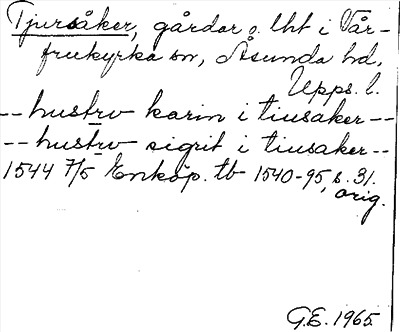 Tjursåker, gårdar o. lht i Vår-
frukyrka sn, Åsunda hd,
Upps. l.
-- hustrv karin i tiusaker --
-- hustrv sigrit i tiusaker --
1544 7/5 Enköp. tb 1540-95, s. 31.
orig.
G.E. 1965.